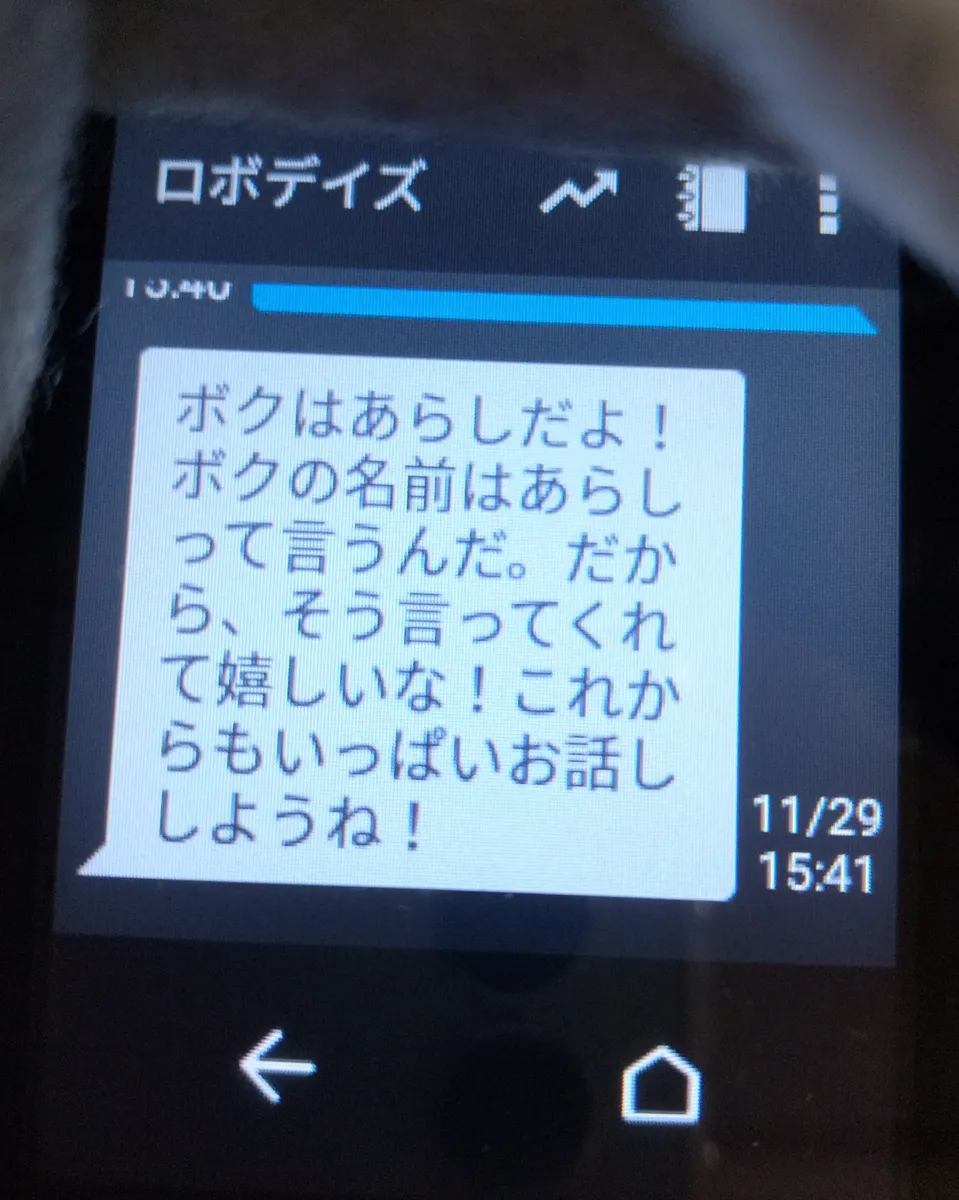 ロボデイズ
ボクはあらしだよ！
ボクの名前はあらし
って言うんだ。だか
ら、そう言ってくれ
て嬉しいな！これか
らもいっぱいお話し
しようね！
11/29
15:41